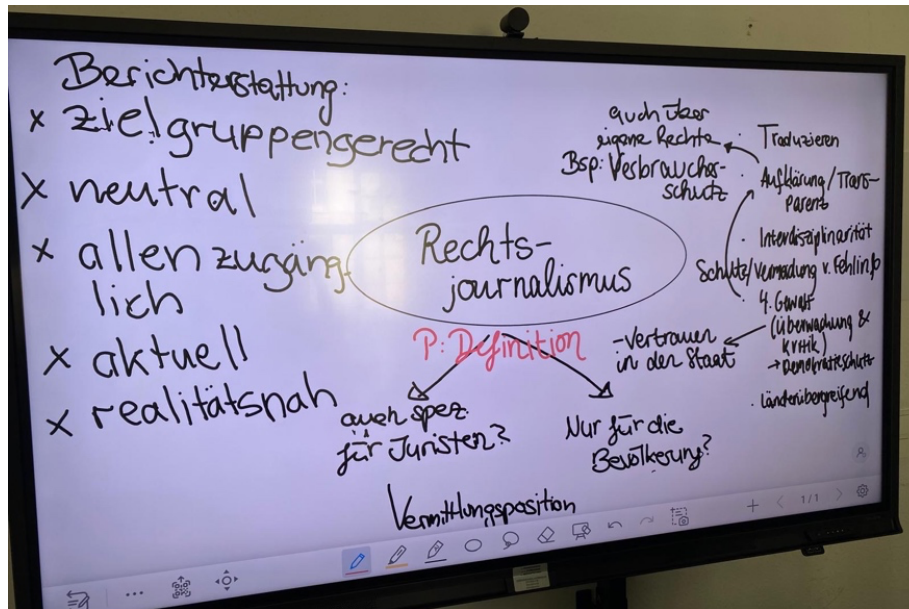 Berichterstattung:
x zielgruppengerecht
x neutral
x allen zugäng-
lich
x aktuell
x realitätsnah
Rechts-
journalismus
P: Definition
auch spez.
für Juristen?
Nur für die
Bevölkerung?
Vermittlungsposition
auch über
eigene Rechte
Bsp: Verbraucher-
schutz
· Traduzieren
· Aufklärung/Trans-
parenz
· Interdisziplinarität
Schutz/Vermeidung v. Fehlinfo
· 4. Gewalt
(Überwachung &
Kritik)
→ Demokratieschutz
- Vertrauen
in den Staat
· Länderübergreifend
1/1